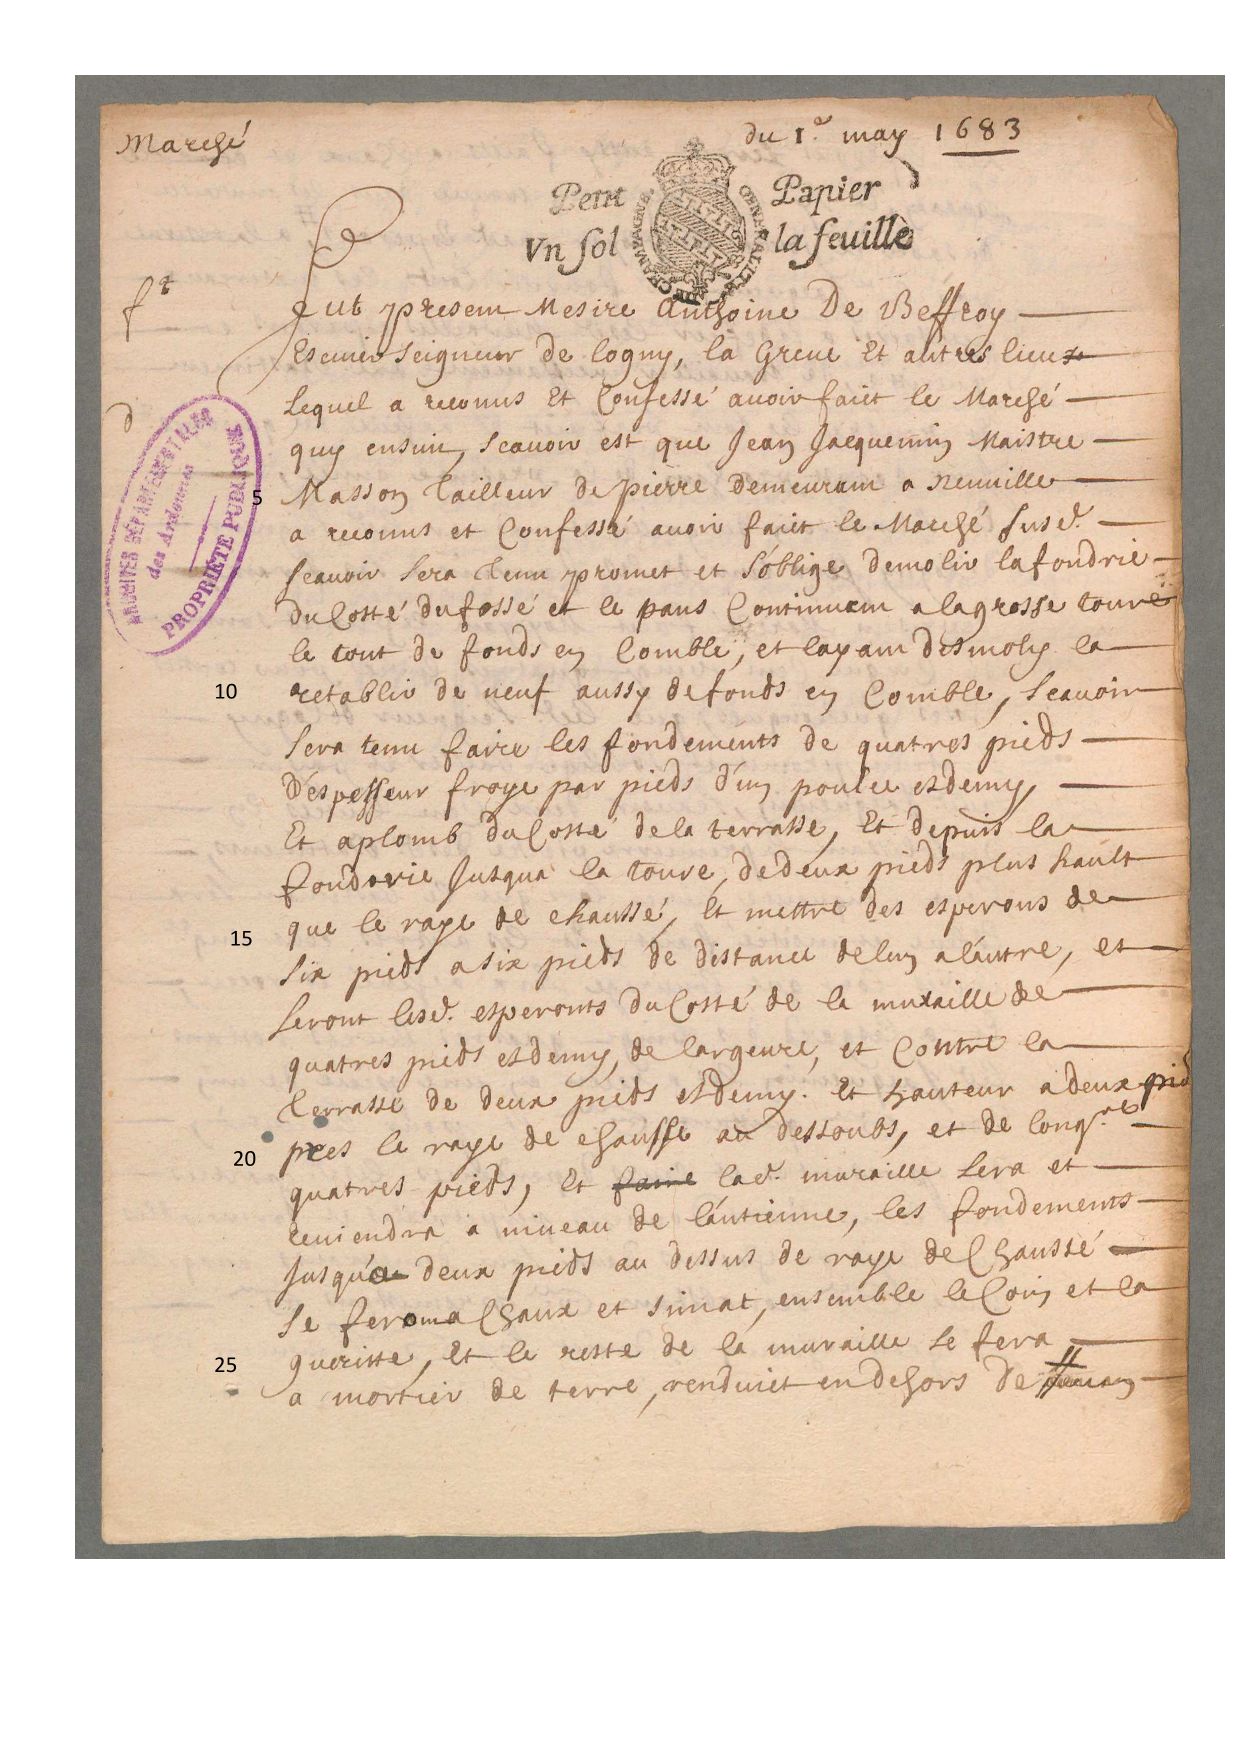 Marché
du 1.e may 1683
Petit Papier
Vn sol la feuille
CHAMPAGNE GENERALITE DE
ft
Fut present Mesire Anthoine De Beffroy
Escuier Seigneur de logny, la Greue Et autres lieux
d
Lequel a reconus Et Confessé auoir faict le Marché
quy ensuit, Scauoir est que Jean Jacquemin Maistre
ARCHIVES DÉPARTEMENTALES
des Ardennes
PROPRIÉTÉ PUBLIQUE
5 Masson Tailleur de pierre demeurant a Neuuille
a reconus et Confessé auoir faict le Marché susd.
scauoir sera Tenu promet et s'oblige demolir la fondrie
du Costé du fossé et le pans Continuent a la grosse toure
le tout de fonds en Comble, et layant desmoly la
10 retablir de neuf aussy de fonds en Comble, scauoir
sera tenu faire les fondements de quatres pieds
D'éspesseur froye par pieds d'un poulce et demy,
Et aplomb du Costé de la terrasse, Et depuis la
fonderie Jusqua la toure, de deux pieds plus hault
15 que le raye de chaussé, et mettre des esperons de
six pieds a six pieds de distance de lun a l'autre, et
seront lesd. esperonts du Costé de la muraille de
quatres pieds et demy, de largeure, et Contre la
Terrasse de deux pieds et demy. Et hauteur a deux pied
20 pres le raye de chausse au dessoubs, et de long.r
quatres pieds, Et faire lad. muraille sera et
reuiendra a niueau de l'antienne, les fondements
Jusqu'a deux pieds au dessus de raye de Chaussé
se feront a Chaux et simat, ensemble le Coin et la
25 gueritte, Et le reste de la muraille se fera
a mortier de terre, renduict en dehors de